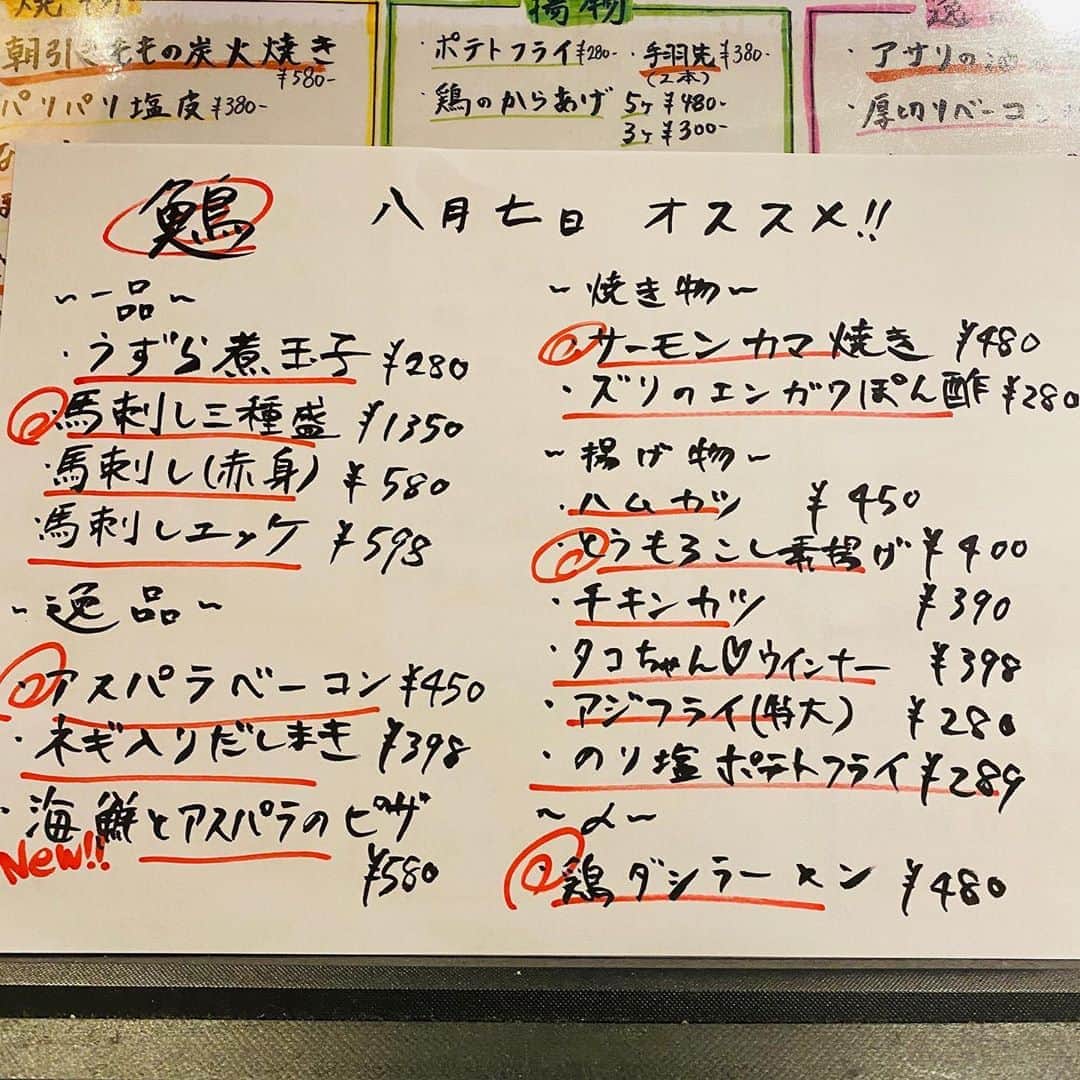 焼物
朝引きももの炭火焼き
¥580-
パリパリ塩皮 ¥380-
揚物
・ポテトフライ ¥280- ・手羽先 ¥380-
(2本)
・鶏のからあげ 5ヶ ¥480-
3ヶ ¥300-
逸
・アサリの酒
・厚切りベーコン
八月七日 オススメ!!
〜一品〜
・うずら煮玉子 ¥280
・馬刺し三種盛 ¥1350
・馬刺し(赤身) ¥580
・馬刺しエッケ ¥598
〜逸品〜
・アスパラベーコン ¥450
・ネギ入りだしまき ¥398
・海鮮とアスパラのピザ
New!!
¥580
〜焼き物〜
・サーモンカマ焼き ¥480
・ズリのエンガワぽん酢 ¥280
〜揚げ物〜
・ハムカツ ¥450
・とうもろこし素揚げ ¥400
・チキンカツ ¥390
・タコちゃん♡ウインナー ¥398
・アジフライ(特大) ¥280
・のり塩ポテトフライ ¥289
〜〆〜
・鶏ダシラーメン ¥480